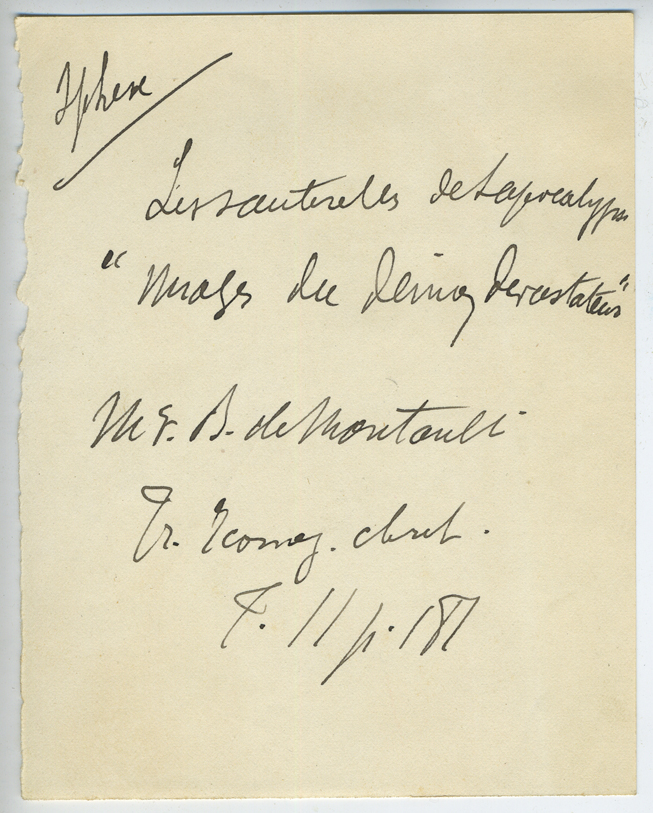 Sphère
Les sauterelles de l'apocalypse
" images du démon dévastateur"
Mgr. B. de Montault
Tr. Iconog. chret.
T. II p. 187